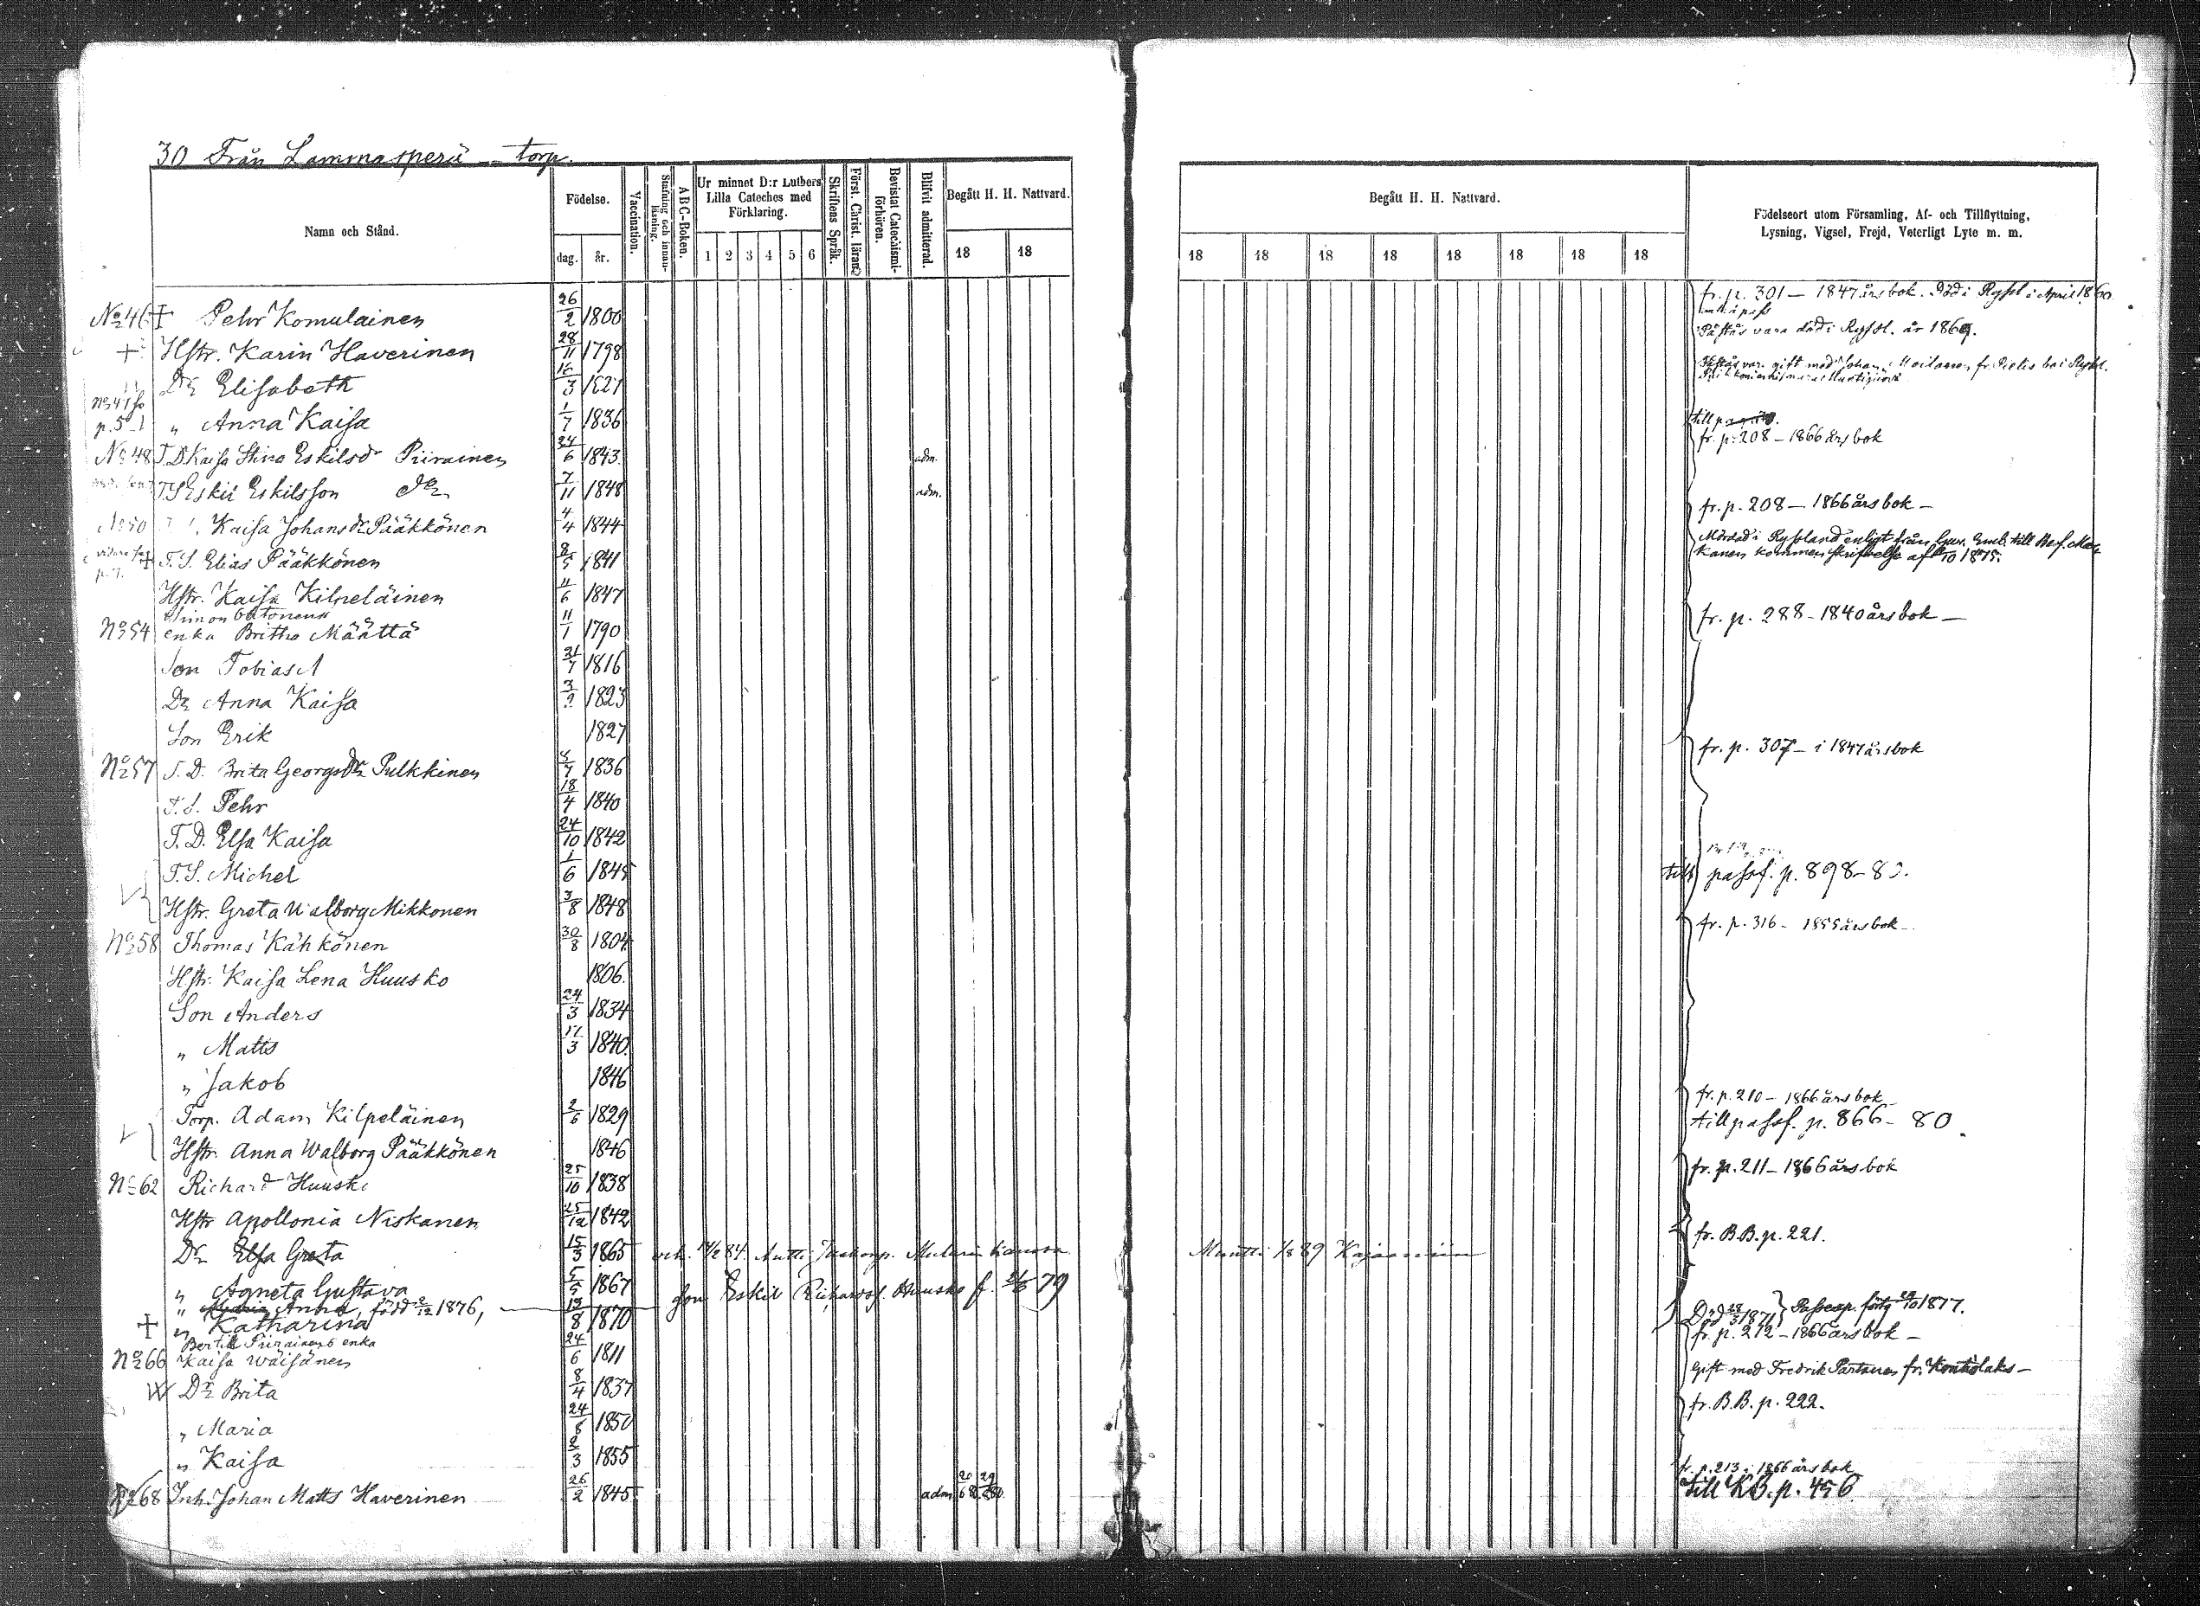 30 Från Lammasperä - torp.
Namn och Stånd.
Födelse.
dag. år.
Vaccination.
Stafning och innanläsning.
A B C-Boken.
Ur minnet D:r Luthers Lilla Cateches med Förklaring.
1 2 3 4 5 6
Skriftens Språk.
Först. Christ. läran.
Bevistat Catechismi-förhören.
Blifvit admitterad.
Begått H. H. Nattvard.
18 18
Begått H. H. Nattvard.
18 18 18 18 18 18 18 18
Födelseort utom Församling, Af- och Tillflyttning,
Lysning, Vigsel, Frejd, Veterligt Lyte m. m.
No 46 + Pehr Komulainen 26/2 1800 fr. p. 301 – 1847 års bok. Död i Ryssl. i April 1860
+ Hstr. Karin Haverinen 28/11 1798 Påstås vara död i Ryssl. år 1869.
Dr Elisabeth 16/3 1821 Påstås vara gift med Johan Moilanen fr. Pielis
p. 5 " Anna Kaisa 1/7 1836 till p.
No 48 T.D. Kaisa Stina Eskilsdr Piirainen 24/6 1843. adm. fr. p. 208 – 1866 års bok
T.S. Eskil Eskilsson Do 7/11 1848 adm.
No 50 Kaisa Johansdr Pääkkönen 4/4 1844 fr. p. 208 – 1866 års bok –
+ T.S. Elias Pääkkönen 8/5 1841 Mördad i Ryssland enligt från Guv. Emb. till
kanen kommen skrifvelse af 1875.
Hstr. Kaisa Kilpeläinen 11/6 1847
Simon
No 54 enka Britha Määttä 11/1 1790 fr. p. 288 – 1840 års bok –
Son Tobias 31/7 1816
Dr Anna Kaisa 3/9 1823
Son Erik 1827
No 57 T.D. Brita Georgsdr Pulkkinen 4/7 1836 fr. p. 307 – i 1847 års bok
T.S. Pehr 18/4 1840
T.D. Elsa Kaisa 24/10 1842
T.S. Michel 1/6 1845 till passf. p. 898 – 80.
Hstr. Greta Walborg Mikkonen 3/8 1848
No 58 Thomas Kähkönen 30/8 1804 fr. p. 316 – 1855 års bok –
Hstr. Kaisa Lena Huusko 1806.
Son Anders 24/3 1834
" Matts 17/3 1840.
" Jakob 1846
Torp. Adam Kilpeläinen 2/6 1829 fr. p. 210 – 1866 års bok
till passf. p. 866 – 80.
Hstr. Anna Walborg Pääkkönen 1846
No 62 Richard Huusko 25/10 1838 fr. p. 211 – 1866 års bok
Hstr Apollonia Niskanen 25/12 1842
Dr Elsa Greta 15/3 1865 fr. B.B. p. 221.
Muutti 89 Kajaaniin
" Agneta Gustava 5/5 1867 son Eskil Richardss. Huusko f. 79
" Anna, född 2/12 1876,
+ " Katharina 13/8 1870 Död 1871 Passexp. förtg 1877.
Bertil Piirainens enka
No 66 Kaisa Wäisänen 24/6 1811 fr. p. 212 – 1866 års bok –
Dr Brita 8/4 1837 Gift med Fredrik Partanen fr. Kontiolaks –
" Maria 24/8 1850 fr. B.B. p. 222.
" Kaisa 2/3 1855
No 68 Inh. Johan Matts Haverinen 26/2 1845 adm fr. p. 213 i 1866 års bok
till KB. p. 456